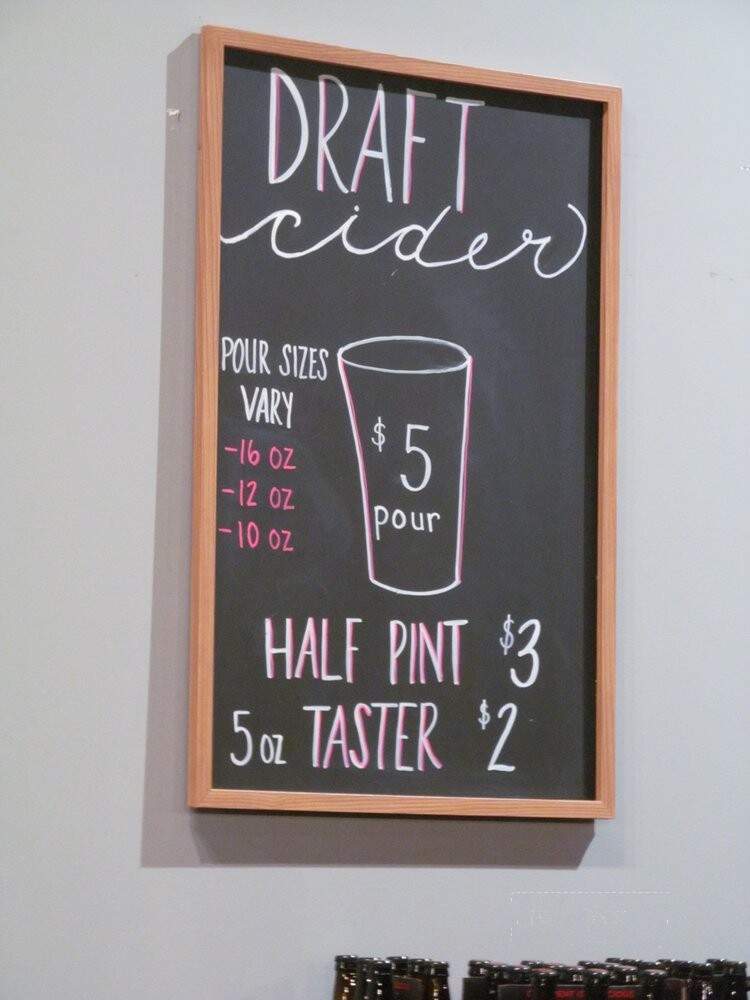 DRAFT
cider
POUR SIZES
VARY
-16 oz
-12 oz
-10 oz
$5
pour
HALF PINT $3
5 oz TASTER $2